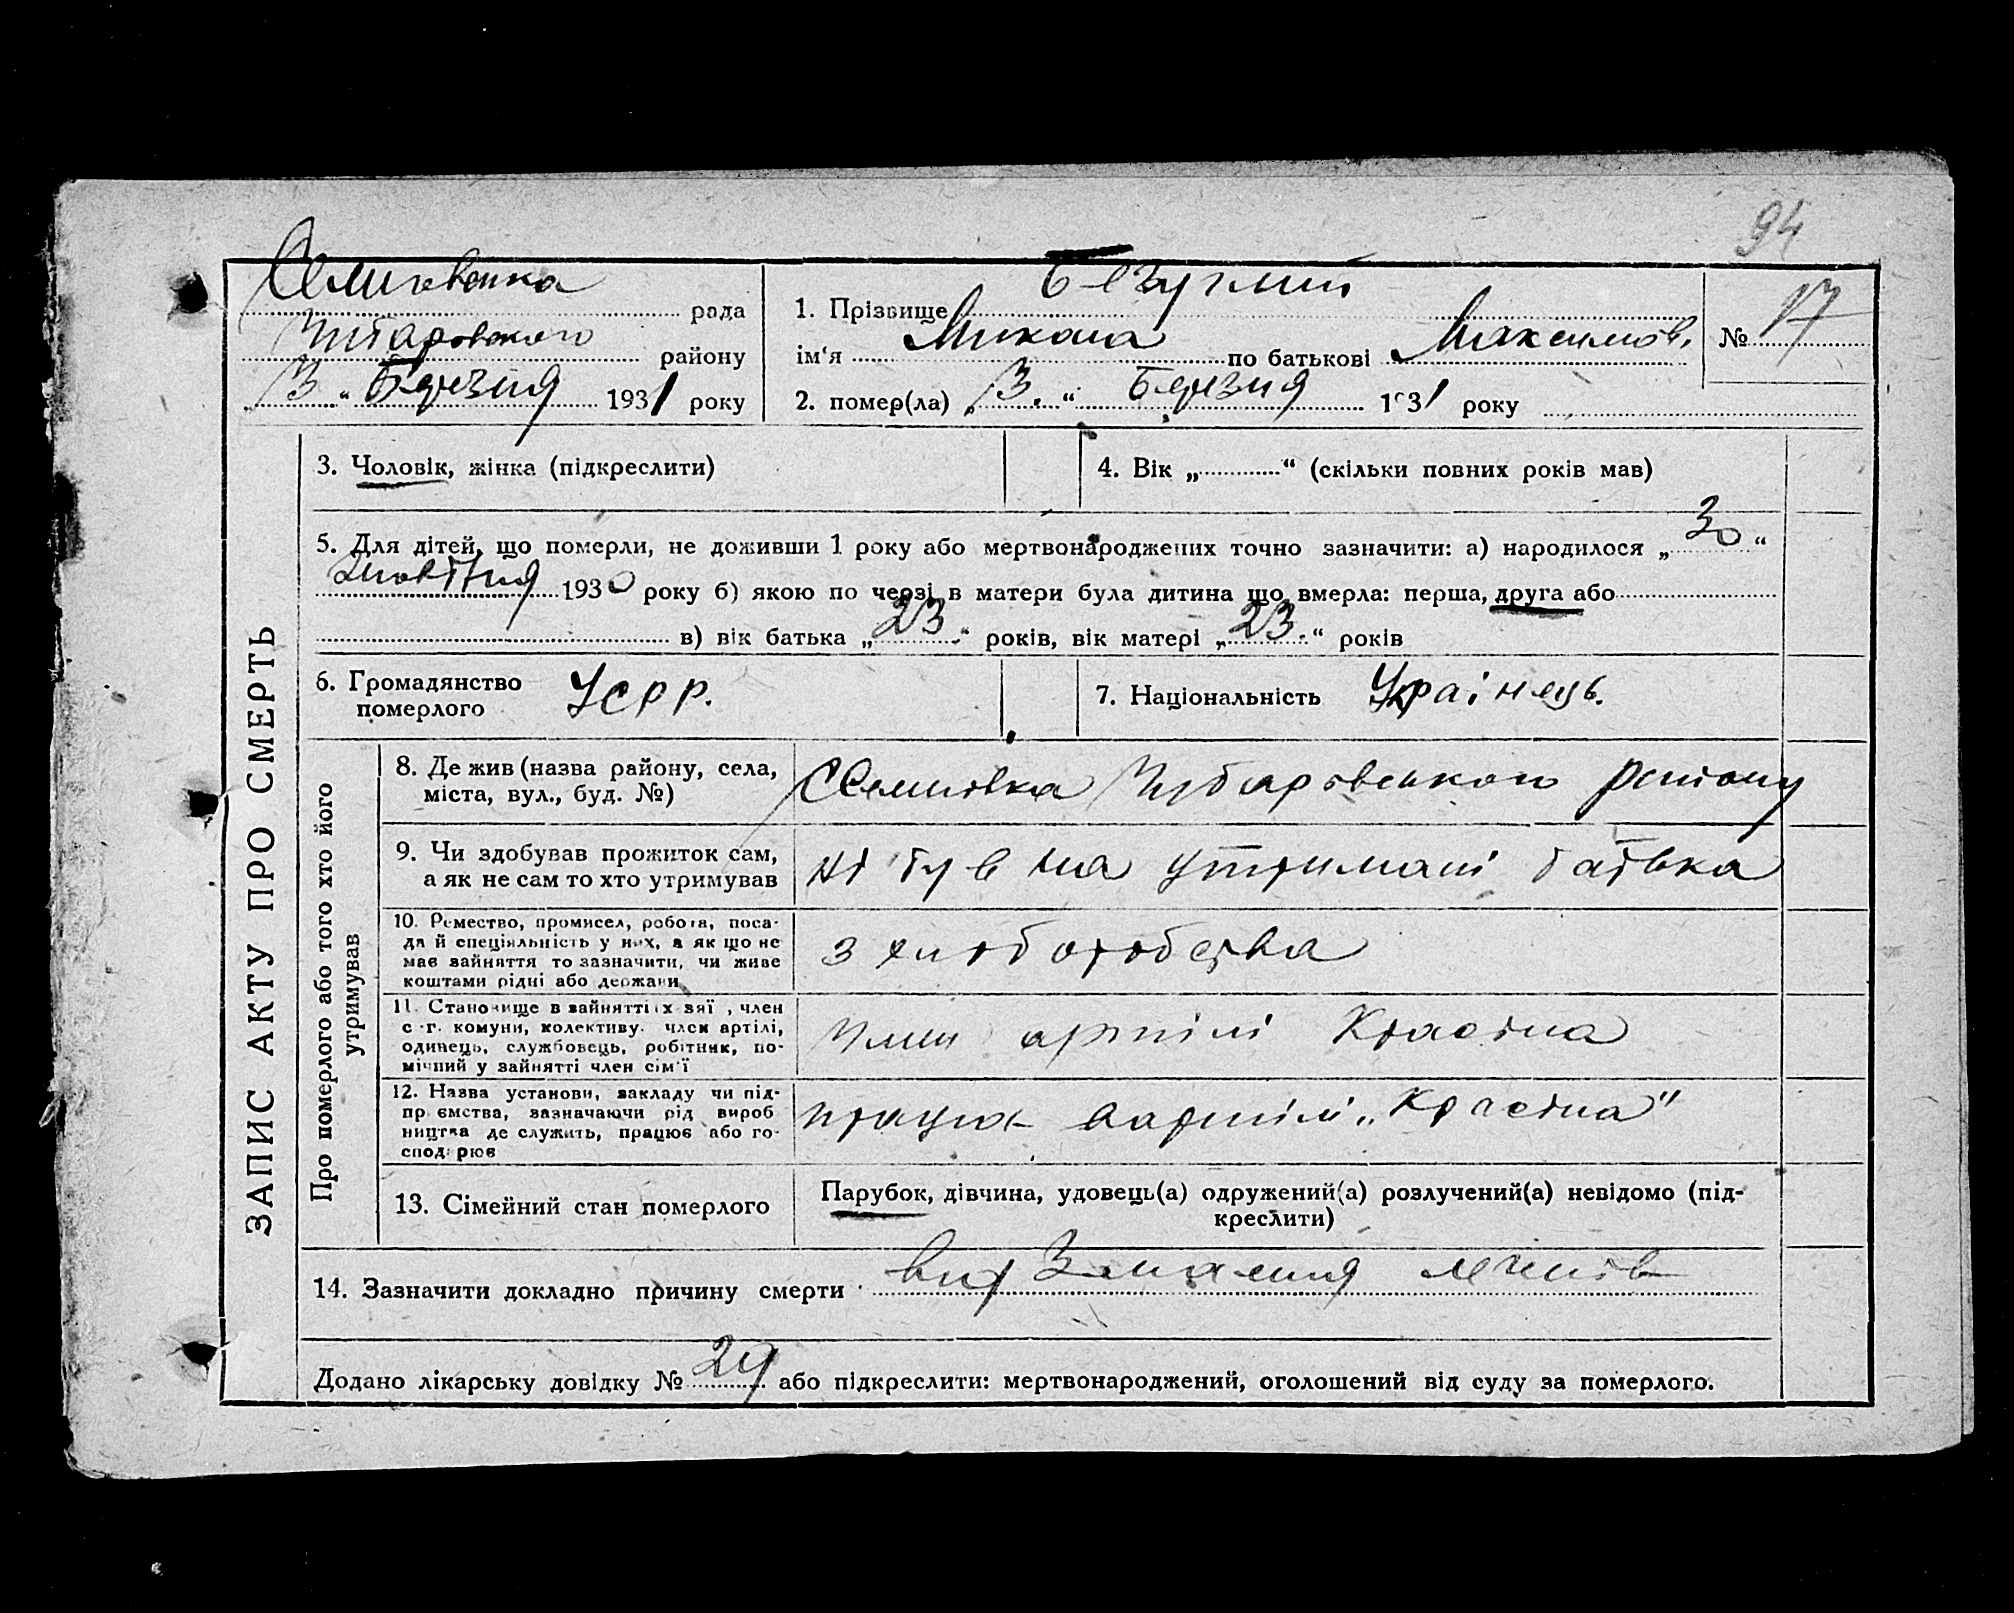 94
Семиівська рада
Чубаровського району
„3“ Березня 1931 року
1. Прізвище Безуглий
ім‘я Микола по батькові Максимов.
№ 17
2. помер(ла) „3.“ Березня 1931 року
ЗАПИС АКТУ ПРО СМЕРТЬ
3. Чоловік, жінка (підкреслити)
4. Вік „ “ (скільки повних років мав)
5. Для дітей, що померли, не доживши 1 року або мертвонароджених точно зазначити: а) народилося „30“
Жовтня 1930 року б) якою по черзі в матери була дитина що вмерла: перша, друга або
в) вік батька „23“ років, вік матері „23.“ років
6. Громадянство
померлого
УСРР.
7. Національність Українець.
Про померлого або того хто його
утримував
8. Де жив (назва району, села,
міста, вул., буд. №)
Чубаровського району
9. Чи здобував прожиток сам,
а як не сам то хто утримував
ні був на утримані батька
10. Ремество, промисел, робота, поса-
да й спеціяльність у них, а як що не
має зайняття то зазначити, чи живе
коштами рідні або держави
з хліборобства
11. Становище в зайнятті їх , член
с.-г. комуни, колективу, член артілі,
одинець, службовець, робітник, по-
мічний у зайнятті член сім‘ї
Член артілі
12. Назва установи, закладу чи під-
приємства, зазначаючи рід вироб
ництва де служить, працює або го-
сподарює
працює в артілі
13. Сімейний стан померлого
Парубок, дівчина, удовець(а) одружений(а) розлучений(а) невідомо (під-
креслити)
14. Зазначити докладно причину смерти від Запалення легенів
Додано лікарську довідку № 29 або підкреслити: мертвонароджений, оголошений від суду за померлого.